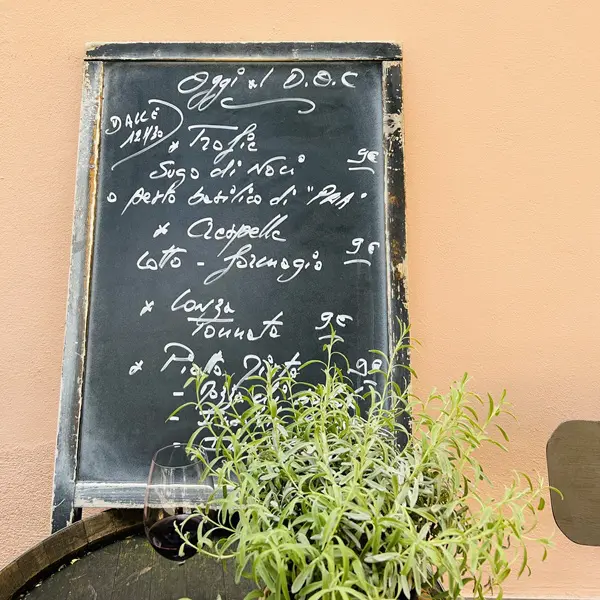 Oggi al D.O.C
DALLE
12/30
* Trofie
Sugo di Noci 9€
o pesto basilico di "PRA"
* Crespelle
Cotto - formagio 9€
* Lonza
Tonnata 9€
* Piatto Misto 9€